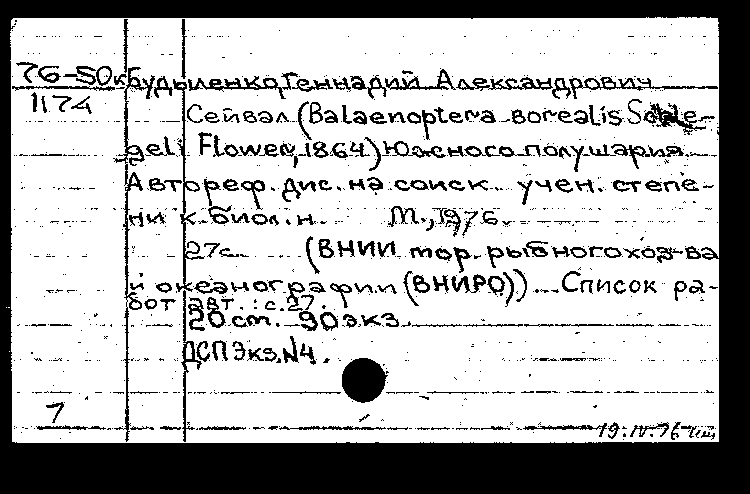 76-50к Будыленко, Геннадий Александрович
1174
Сейвал (Balaenoptera borealis Schle-
geli Flower, 1864) Южного полушария.
Автореф. дис. на соиск. учен. степе-
ни к. биол. н. М., 1976.
27с. (ВНИИ мор. рыбного хоз-ва
и океанографии (ВНИРО)). Список ра-
бот авт.: с.27.
20 см. 90 экз.
ДСП Экз. №4.
7
19.IV.76